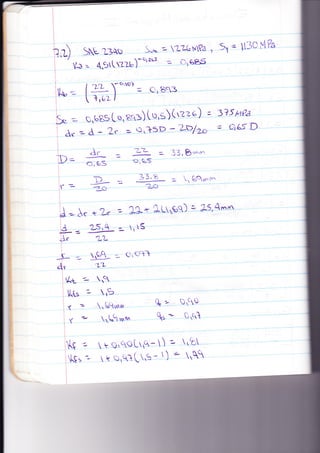 7.2) SAE 2340 Sut = 1226 MPa, Sy = 1130 MPa
Ka = 4,51(1226)^-0,265 = 0,685
Kb = (22/7,62)^-0,107 = 0,893
Se = 0,685(0,893)(0,5)(1226) = 375 MPa
dr = d - 2r = 0,75D - 2D/20 = 0,65D
D = dr/0,65 = 22/0,65 = 33.8mm
r = D/20 = 33.8/20 = 1,69mm
d = dr + 2r = 22 + 2(1,69) = 25,4mm
d/dr = 25,4/22 = 1,15
r/dr = 1,69/22 = 0,077
Kt = 1,9
Kts = 1,5
r = 1,69mm q = 0,90
r = 1,69mm qs = 0,97
Kf = 1 + 0,90(1,9-1) = 1,81
Kfs = 1 + 0,97(1,5-1) = 1,49